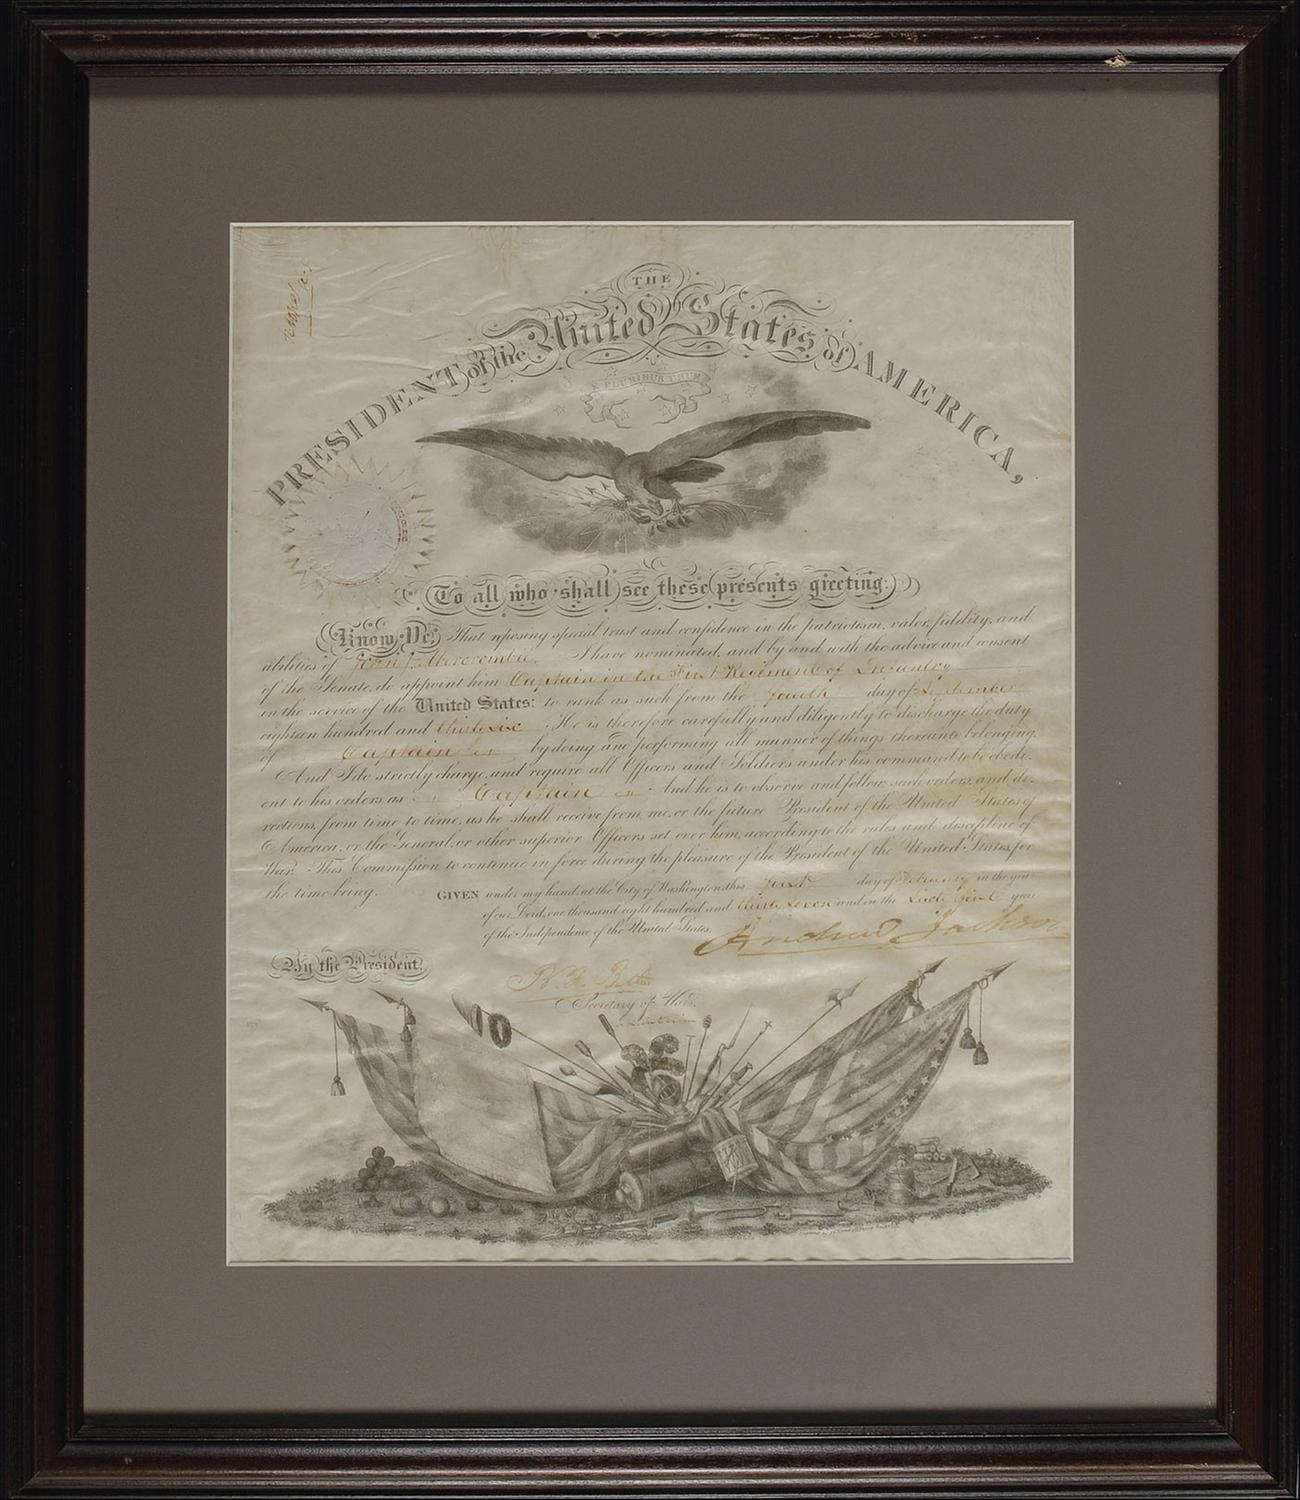 THE
PRESIDENT of the United States of AMERICA,
E PLURIBUS UNUM
To all who shall see these presents greeting:
Know Ye, That reposing special trust and confidence in the patriotism, valor, fidelity, and
abilities of John J. Abercrombie, I have nominated, and by and with the advice and consent
of the Senate, do appoint him Captain in the First Regiment of Infantry
in the service of the United States: to rank as such from the fourth day of September
eighteen hundred and thirty six. He is therefore carefully and diligently to discharge the duty
of Captain by doing and performing all manner of things thereunto belonging.
And I do strictly charge, and require all Officers and Soldiers under his command to be obedi-
ent to his orders as Captain And he is to observe and follow such orders, and di-
rections, from time to time, as he shall receive from me, or the future President of the United States of
America, or the General, or other superior Officers set over him, according to the rules and discipline of
War. This Commission to continue in force during the pleasure of the President of the United States, for
the time being.
GIVEN under my hand, at the City of Washington, this first day of February in the year
of our Lord, one thousand eight hundred and thirty seven and in the Sixty first year
of the Independence of the United States.
Andrew Jackson
By the President,
B. F. Butler
Secretary of War.
ad interim